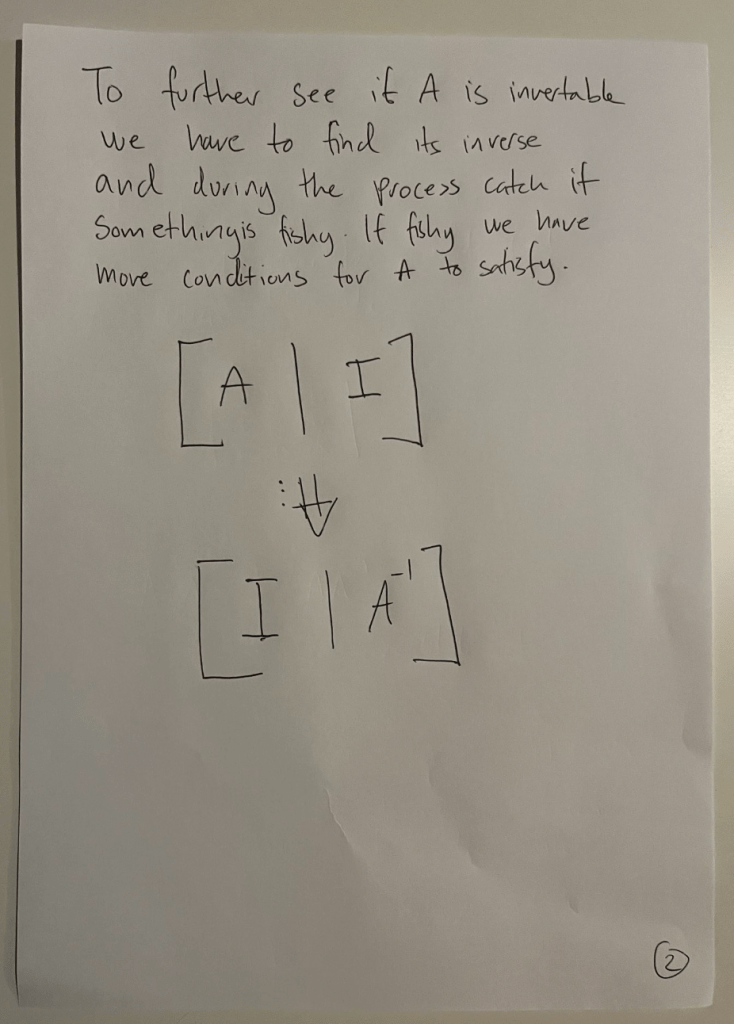 To further see if A is invertable
we have to find its inverse
and during the process catch if
Somethingis fishy. If fishy we have
more conditions for A to satisfy.
[A | I]
⋮ ⇓
[I | A⁻¹]
2